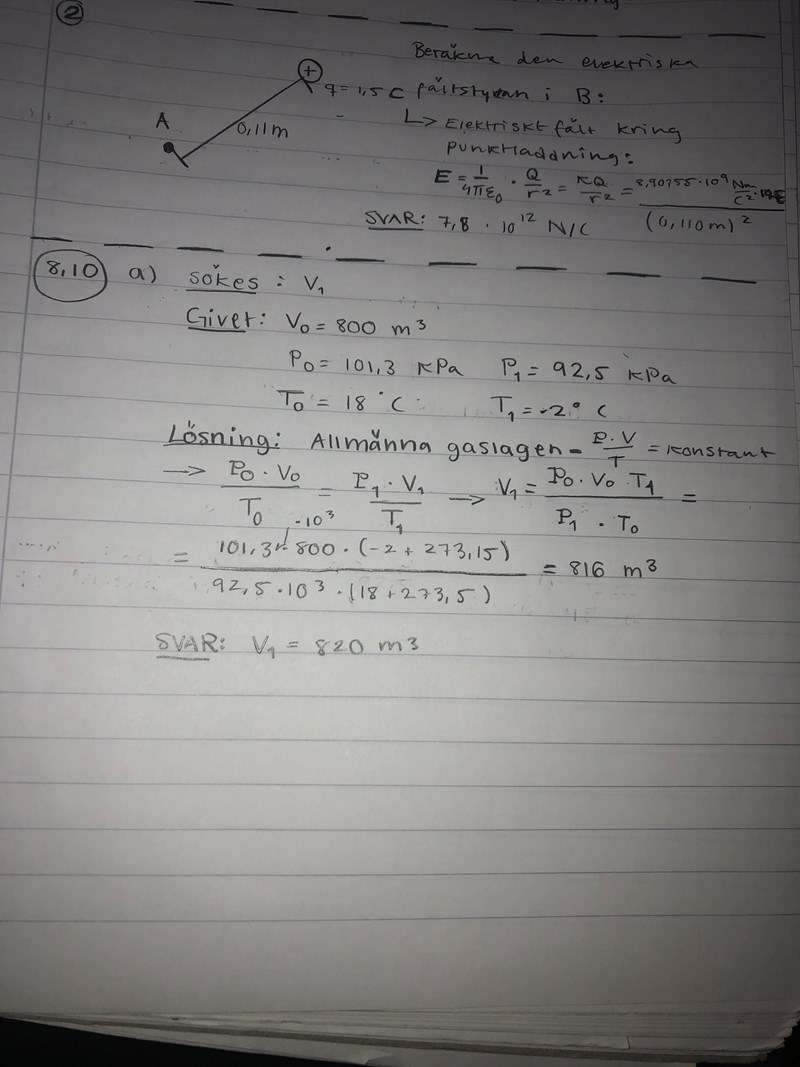 ②
Beräkna den elektriska
+
q = 1,5 C fältstyrkan i B:
A
0,11m
↳ Elektriskt fält kring
punktladdning:
E = 1/4πε₀ · Q/r² = KQ/r² = 8,90755·10⁹ Nm/C² · / (0,110m)²
SVAR: 7,8 · 10¹² N/C
8,10 a) sökes : V₁
Givet: V₀ = 800 m³
P₀ = 101,3 kPa P₁ = 92,5 kPa
T₀ = 18 °C T₁ = -2° C
Lösning: Allmänna gaslagen - P·V/T = konstant
→ P₀ · V₀/T₀ = P₁ · V₁/T₁ → V₁ = P₀ · V₀ · T₁/P₁ · T₀ =
= 101,3 ·10³ · 800 · (-2 + 273,15)/92,5 · 10³ · (18 + 273,5) = 816 m³
SVAR: V₁ = 820 m³